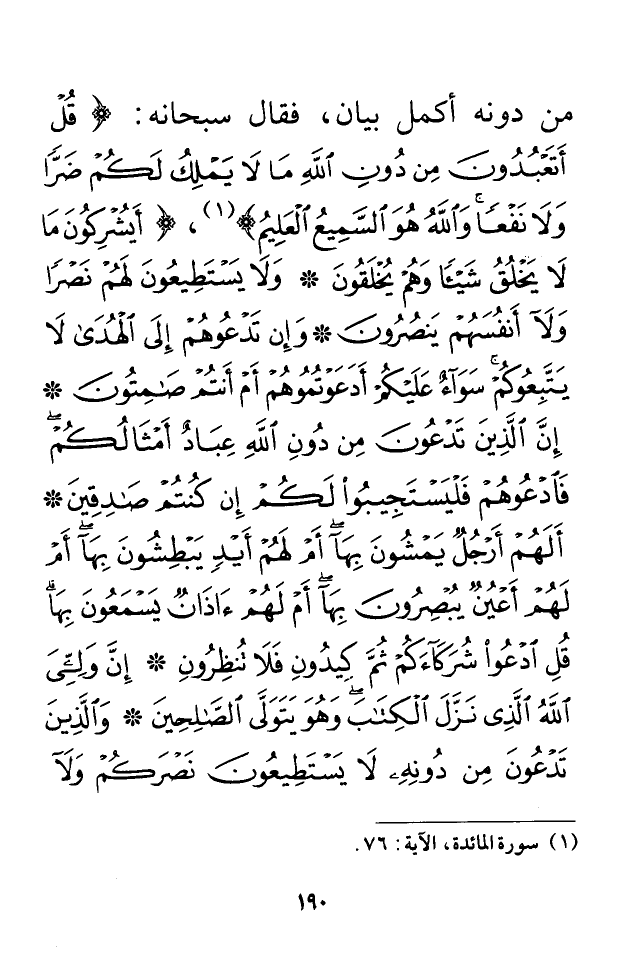 من دونه أكمل بيان، فقال سبحانه: ﴿ قُلْ
أَتَعْبُدُونَ مِن دُونِ ٱللَّهِ مَا لَا يَمْلِكُ لَكُمْ ضَرًّا
وَلَا نَفْعًا ۚ وَٱللَّهُ هُوَ ٱلسَّمِيعُ ٱلْعَلِيمُ﴾(١)، ﴿ أَيُشْرِكُونَ مَا
لَا يَخْلُقُ شَيْـًٔا وَهُمْ يُخْلَقُونَ * وَلَا يَسْتَطِيعُونَ لَهُمْ نَصْرًا
وَلَآ أَنفُسَهُمْ يَنصُرُونَ * وَإِن تَدْعُوهُمْ إِلَى ٱلْهُدَىٰ لَا
يَتَّبِعُوكُمْ ۚ سَوَآءٌ عَلَيْكُمْ أَدَعَوْتُمُوهُمْ أَمْ أَنتُمْ صَـٰمِتُونَ *
إِنَّ ٱلَّذِينَ تَدْعُونَ مِن دُونِ ٱللَّهِ عِبَادٌ أَمْثَالُكُمْ ۖ
فَٱدْعُوهُمْ فَلْيَسْتَجِيبُوا۟ لَكُمْ إِن كُنتُمْ صَـٰدِقِينَ *
أَلَهُمْ أَرْجُلٌ يَمْشُونَ بِهَآ ۖ أَمْ لَهُمْ أَيْدٍ يَبْطِشُونَ بِهَآ ۖ أَمْ
لَهُمْ أَعْيُنٌ يُبْصِرُونَ بِهَآ ۖ أَمْ لَهُمْ ءَاذَانٌ يَسْمَعُونَ بِهَا ۗ
قُلِ ٱدْعُوا۟ شُرَكَآءَكُمْ ثُمَّ كِيدُونِ فَلَا تُنظِرُونِ * إِنَّ وَلِـِّۧىَ
ٱللَّهُ ٱلَّذِى نَزَّلَ ٱلْكِتَـٰبَ ۖ وَهُوَ يَتَوَلَّى ٱلصَّـٰلِحِينَ * وَٱلَّذِينَ
تَدْعُونَ مِن دُونِهِۦ لَا يَسْتَطِيعُونَ نَصْرَكُمْ وَلَآ
(١) سورة المائدة، الآية: ٧٦.
١٩٠